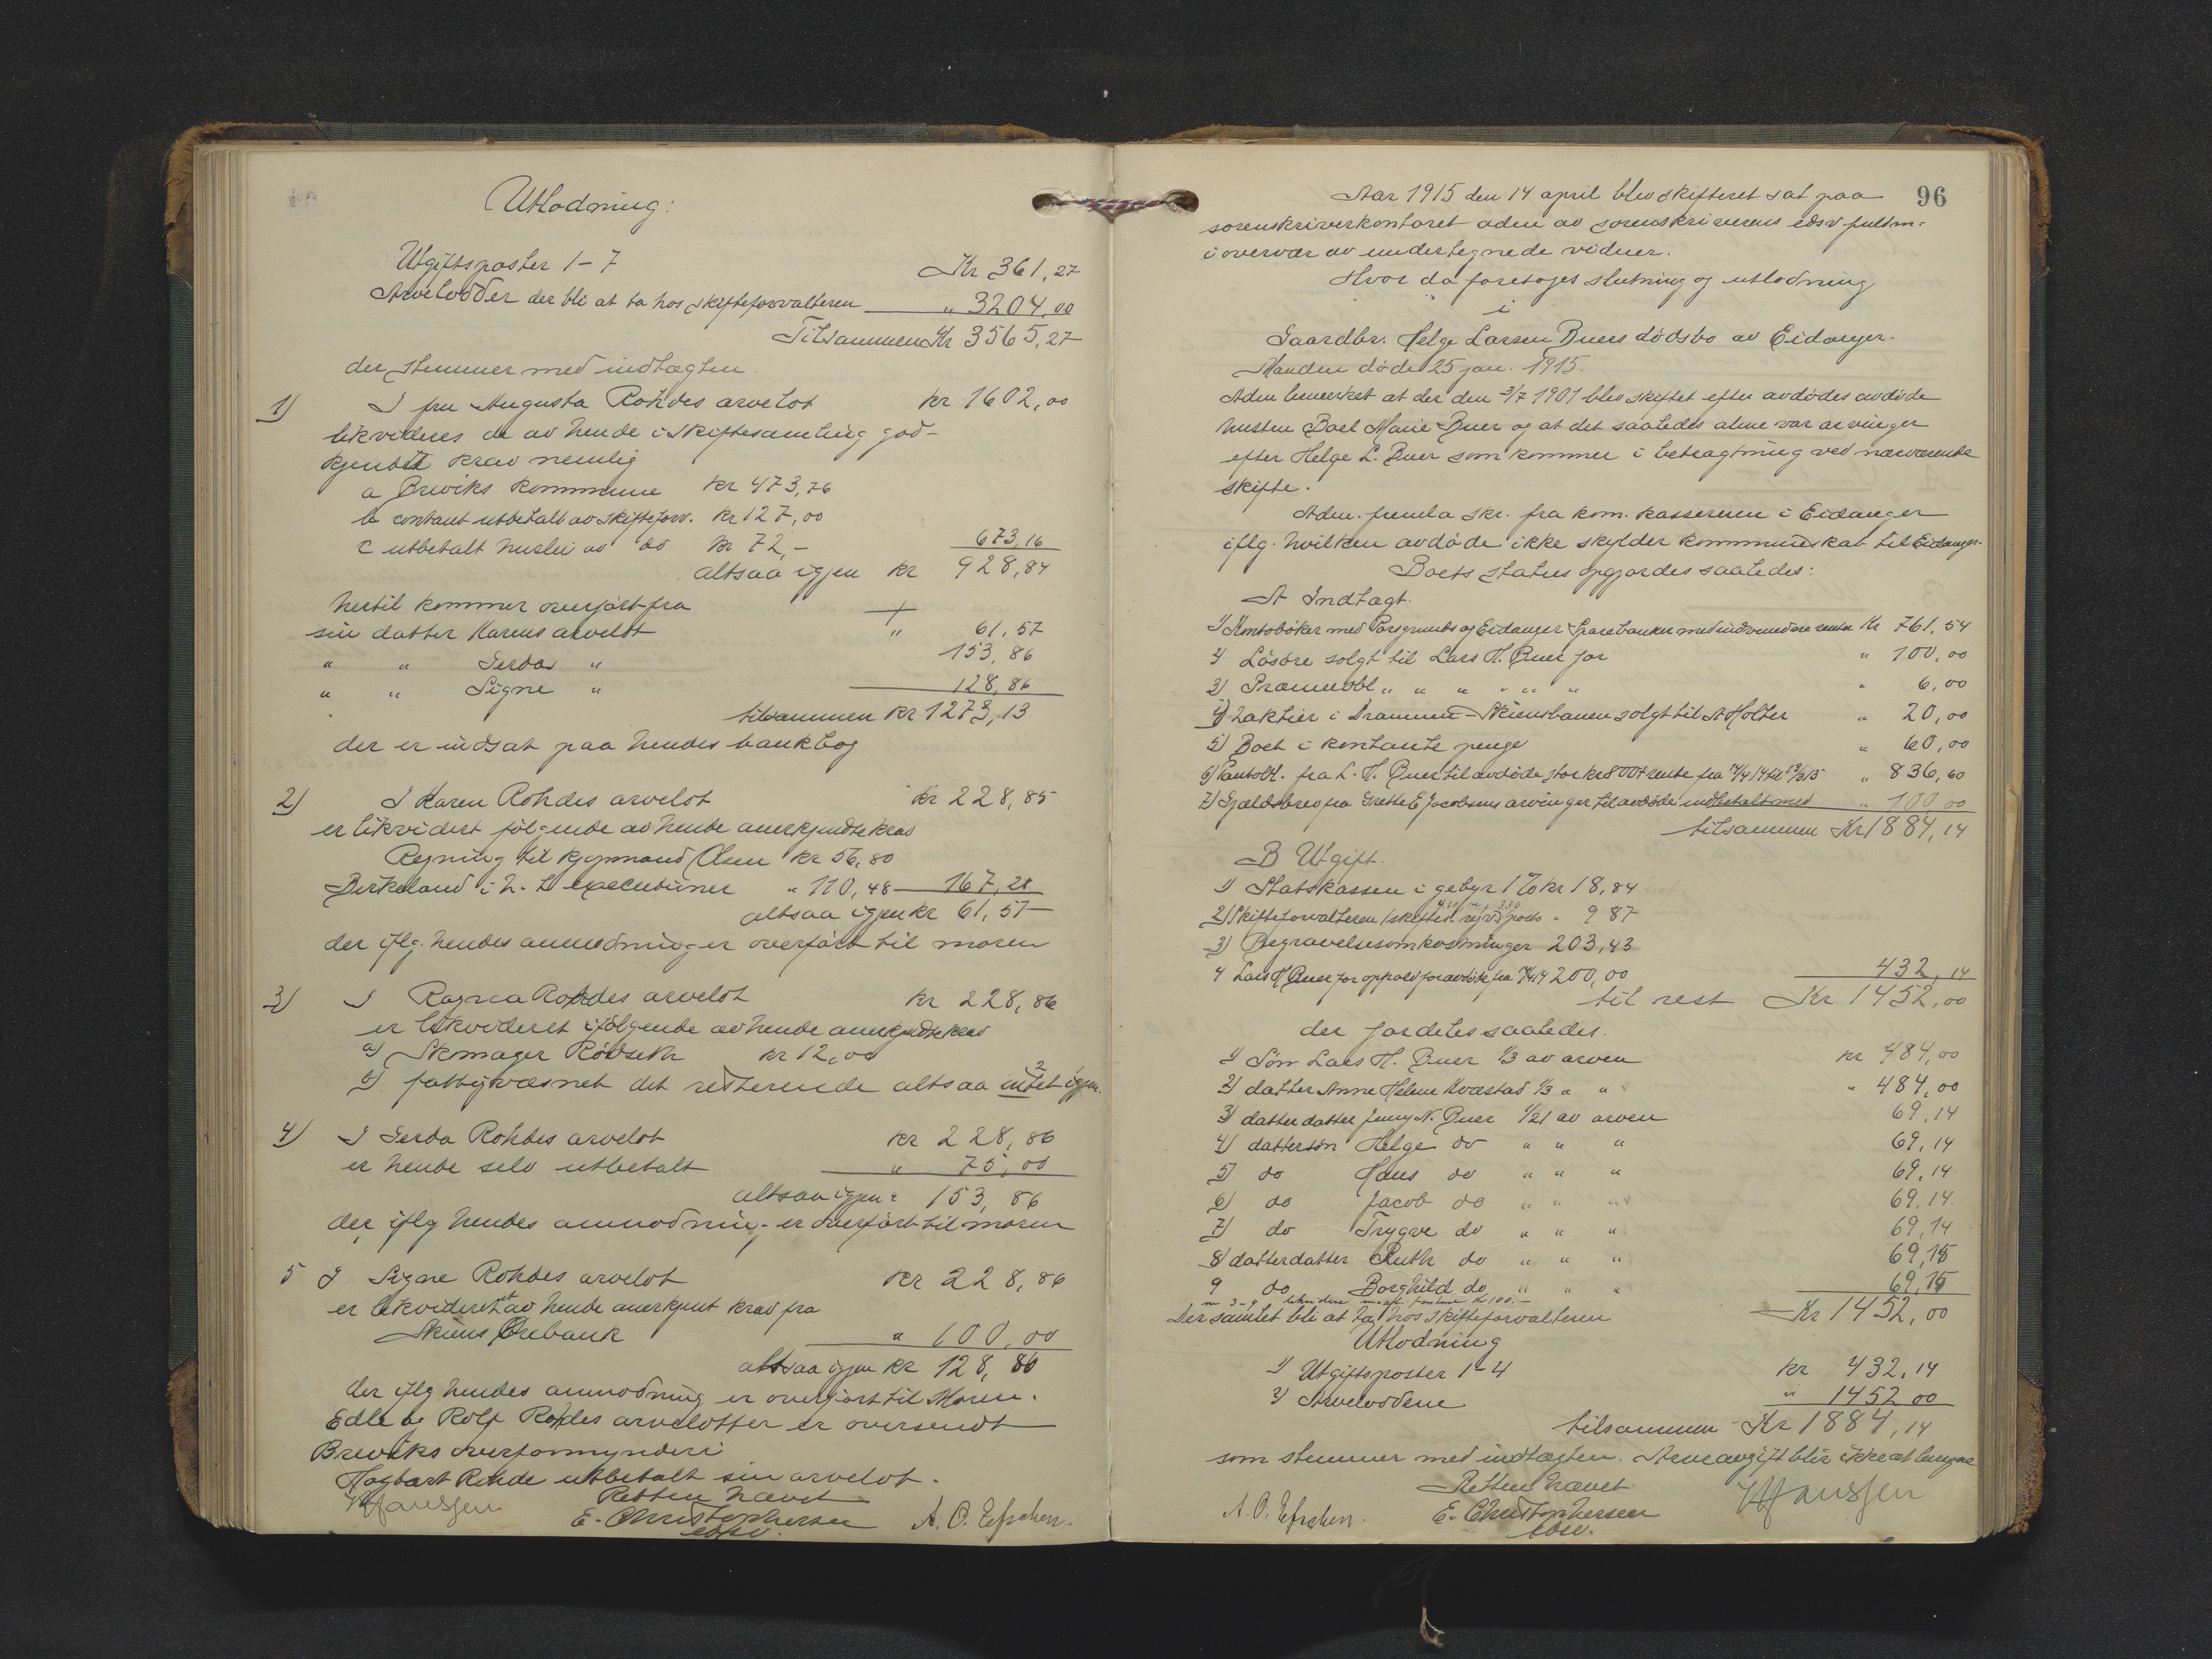 Utlodning:
Utgiftsposter 1-7 Kr 361,27
Arvelodder der bli at ta hos skifteforvalteren " 3204,00
Tilsammen Kr 3565,27
der stemmer med indtægten.
1) I fru Augusta Rohdes arvelot kr 1602,00
likvideres de av hende i skiftesamling god-
kjendte krav nemlig
a Breviks kommune kr 473,76
b contant utbetalt av skifteforv. kr 127,00
c utbetalt husleie av do kr 72,- 673,16
altsaa igjen kr 928,84
hertil kommer overført fra +
sin datter Karens arvelot " 61,57
" " Gerdas " 153,86
" " Signe " 128,86
tilsammen kr 1273,13
der er indsat paa hendes bankbog
2) I Karen Rohdes arvelot kr 228,85
er likvidert følgende av hende anerkjendte krav
Regning til kjøpmand Olsen kr 56,80
Birkeland i h. t. executioner " 110,48 167,28
altsaa igjen kr 61,57
der iflg. hendes anmodning er overført til moren
3) I Ragna Rohdes arvelot kr 228,86
er likvideret følgende av hende anerkjendte krav
a) Skomager Rødseth kr 12,00
b) fattigvæsnet det resterende altsaa intet igjen.
4) I Gerda Rohdes arvelot kr 228,86
er hende selv utbetalt " 75,00
altsaa igjen " 153,86
der iflg hendes anmodning er overført til moren
5 I Signe Rohdes arvelot kr 228,86
er likvideret et av hende anerkjent krav fra
Skiens Ørebank " 100,00
altsaa igjen kr 128,86
der iflg hendes anmodning er overført til Moren.
Edle og Rolf Rohdes arvelotter er oversendt
Breviks overformynderi
Hagbart Rohde utbetalt sin arvelot.
Retten hævet
Hanssen E. Christophersen A. O. Efschen.
edsv.
96
Aar 1915 den 14 april blev skifteret sat paa
sorenskriverkontoret adm av sorenskriverens edsv fuldm.
i overvær av undertegnede vidner.
Hvor da foretoges slutning og utlodning
i
Gaardbr. Helge Larsen Buers dødsbo av Eidanger.
Manden døde 25 jan. 1915.
Adm bemerket at der den 3/7 1901 blev skiftet efter avdødes avdøde
hustru Boel Marie Buer og at det saaledes alene var arvinger
efter Helge L. Buer som kommer i betragtning ved nærværende
skifte.
Adm. fremla skr. fra kom. kassereren i Eidanger
iflg. hvilken avdøde ikke skylder kommuneskat til Eidanger.
Boets status opgjordes saaledes:
A Indtægt.
1) Kontobøker med Porsgrunds og Eidanger Sparebanker med indvundne renter Kr 761,54
2) Løsøre solgt til Lars H. Buer for " 100,00
3) Præmieobl " " " " " " " 6,00
4) 2 aktier i Drammen-Skiensbanen solgt til A Holter " 20,00
5) Boet i kontante penge " 60,00
6) Pantobl. fra L. H. Buer til avdøde stor kr 800 + rente fra 14/4 14 til " 836,60
7) Gjældsbrev fra Grethe E Jacobsens arvinger til avdøde indbetalt med " 100,00
tilsammen Kr 1884,14
B Utgift.
1) Statskassen i gebyr 1% kr 18,84
2) Skifteforvalteren porto " 9 87
3) Begravelsesomkostninger 203,43
4 Lars H Buer for ophold for avdøde fra 200,00 432,14
til rest Kr 1452,00
der fordeles saaledes.
1) Søn Lars H. Buer 1/3 av arven kr 484,00
2) datter Anne Helene Kvæstad 1/3 " " " 484,00
3) datterdatter Jenny N. Buer 1/21 av arven 69,14
4) dattersøn Helge do " " " 69,14
5) do Hans do " " " 69,14
6) do Jacob do " " " 69,14
7) do Trygve do " " " 69,14
8) datterdatter Ruth do " " " 69,15
9 do Borghild do " " " 69,15
Der samlet bli at ta hos skifteforvalteren Kr 1452,00
Utlodning
1) Utgiftsposter 1-4 kr 432,14
2) Arveloddene " 1452 00
tilsammen Kr 1884,14
som stemmer med indtægten. Arveavgift blir ikke at beregne
Retten hævet.
A. O. Efschen. E. Christophersen Hanssen
edsv.